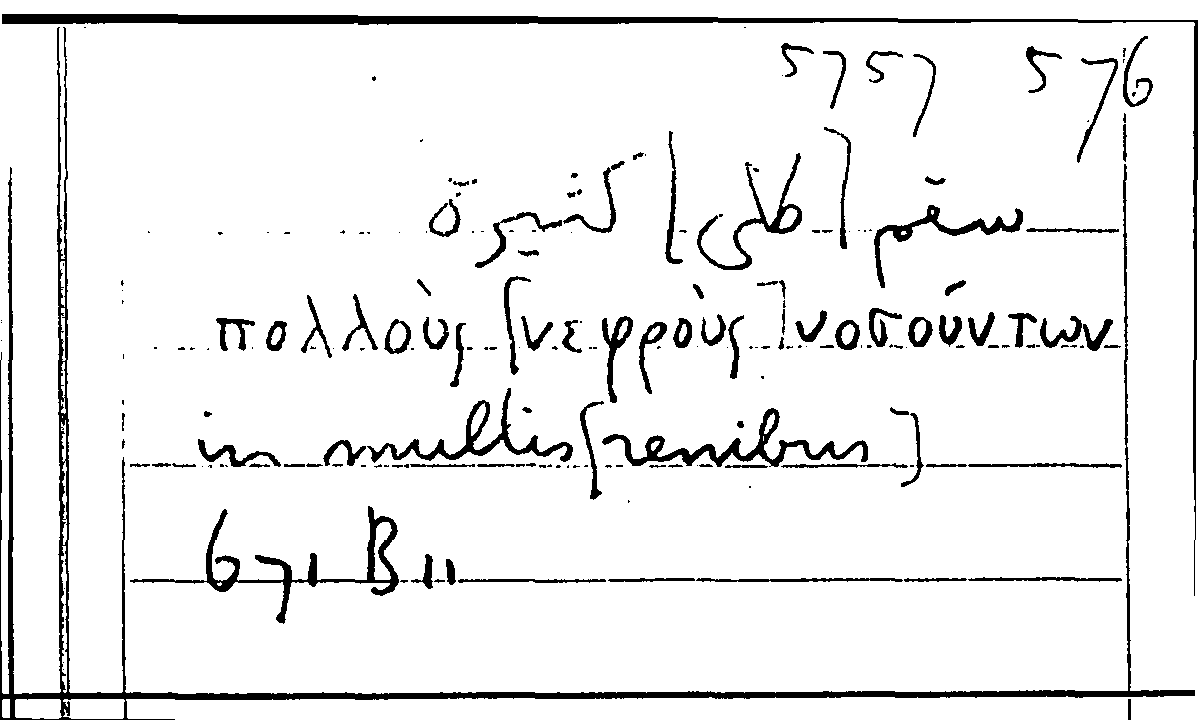 5757 576
πολλοὺς [νεφροὺς] νοσούντων
in multis [renibus]
671 B 11